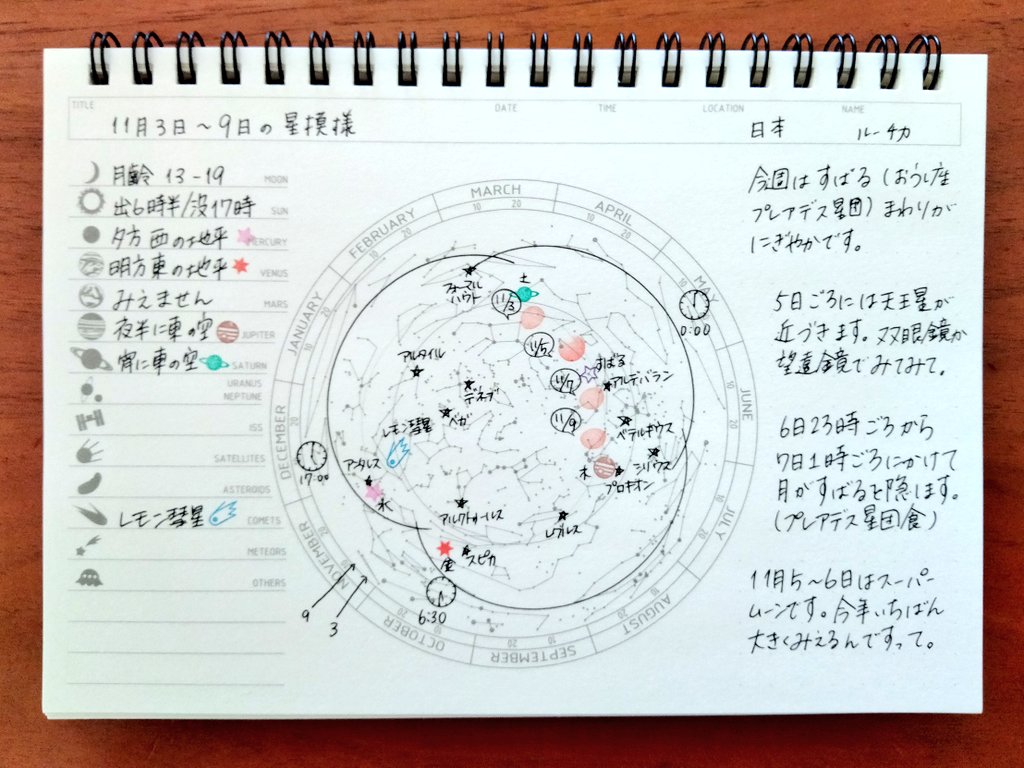 TITLE DATE TIME LOCATION NAME
11月3日〜9日の星模様 日本 ルーチカ
月齢 13-19 MOON
出6時半/没17時 SUN
夕方 西の地平 MERCURY
明方東の地平 VENUS
みえません MARS
夜半に東の空 JUPITER
宵に東の空 SATURN
URANUS
NEPTUNE
ISS
SATELLITES
ASTEROIDS
レモン彗星 COMETS
METEORS
OTHERS
MARCH
APRIL
MAY
JUNE
JULY
AUGUST
SEPTEMBER
OCTOBER
NOVEMBER
DECEMBER
JANUARY
FEBRUARY
フォーマル
ハウト
土
11/3
0:00
11/5
すばる
アルタイル
11/7
アルデバラン
デネブ
ベガ
11/9
ベテルギウス
レモン彗星
シリウス
アンタレス
木
プロキオン
17:00
水
アルクトゥールス
レグルス
金
スピカ
6:30
9
3
今週はすばる(おうし座
プレアデス星団)まわりが
にぎやかです。
5日ごろには天王星が
近づきます。双眼鏡か
望遠鏡でみてみて。
6日23時ごろから
7日1時ごろにかけて
月がすばるを隠します。
(プレアデス星団食)
11月5〜6日はスーパー
ムーンです。今年いちばん
大きくみえるんですって。